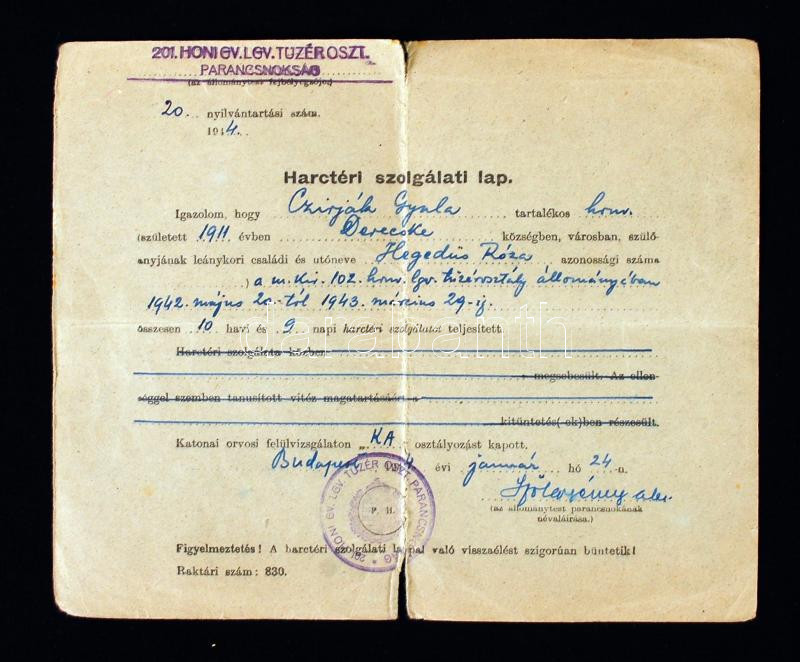 201. HONI GV. LGV. TÜZÉR OSZT.
PARANCSNOKSÁG
(az állománytest fejbélyegzője)
20. nyilvántartási szám.
1944.
Harctéri szolgálati lap.
Igazolom, hogy Czirják Gyula tartalékos honv.
(született 1911 évben Derecske községben, városban, szülő-
anyjának leánykori családi és utóneve Hegedüs Róza azonossági száma
) a m. kir. 102. honv. lgv. tüzérosztály állományában
1942. május 20-tól 1943. március 29-ig.
összesen 10 havi és 9 napi harctéri szolgálatot teljesített
Harctéri szolgálata közben
megsebesült. Az ellen-
séggel szemben tanusított vitéz magatartásáért a
kitüntetés(-ek)ben részesült.
Katonai orvosi felülvizsgálaton „KA” osztályozást kapott.
Budapest 194 4 évi január hó 24-n.
(az állománytest parancsnokának
névaláírása.)
P. H.
201. HONI GV. LGV. TÜZÉR OSZT. PARANCSNOKSÁG
Figyelmeztetés! A harctéri szolgálati lappal való visszaélést szigorúan büntetik!
Raktári szám: 830.
darabanth